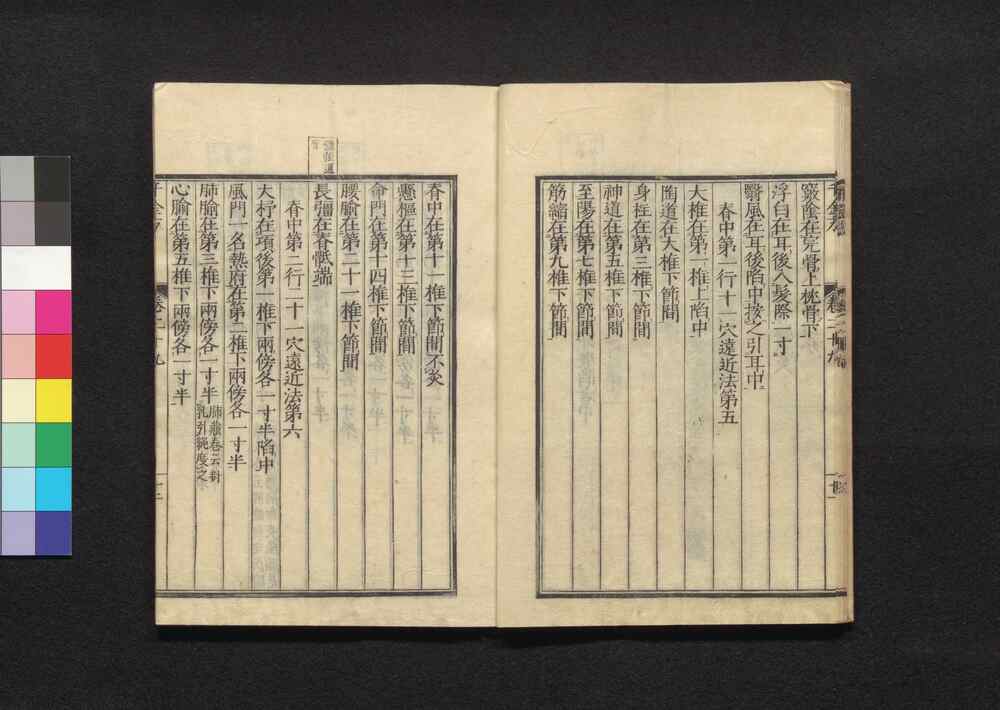 竅陰在完骨上枕骨下
浮白在耳後入髮際一寸
翳風在耳後陷中按之引耳中
脊中第一行十一穴遠近法第五
大椎在第一椎上陷中
陶道在大椎下節間
身柱在第三椎下節間
神道在第五椎下節間
至陽在第七椎下節間
筋縮在第九椎下節間
脊中在第十一椎下節間不灸
懸樞在第十三椎下節間
命門在第十四椎下節間
腰腧在第二十一椎下節間
長彊在脊骶端
脊中第二行二十一穴遠近法第六
大杼在項後第一椎下兩傍各一寸半陷中
風門一名熱府在第二椎下兩傍各一寸半
肺腧在第三椎下兩傍各一寸半肺藏卷云對
乳引繩度之
心腧在第五椎下兩傍各一寸半